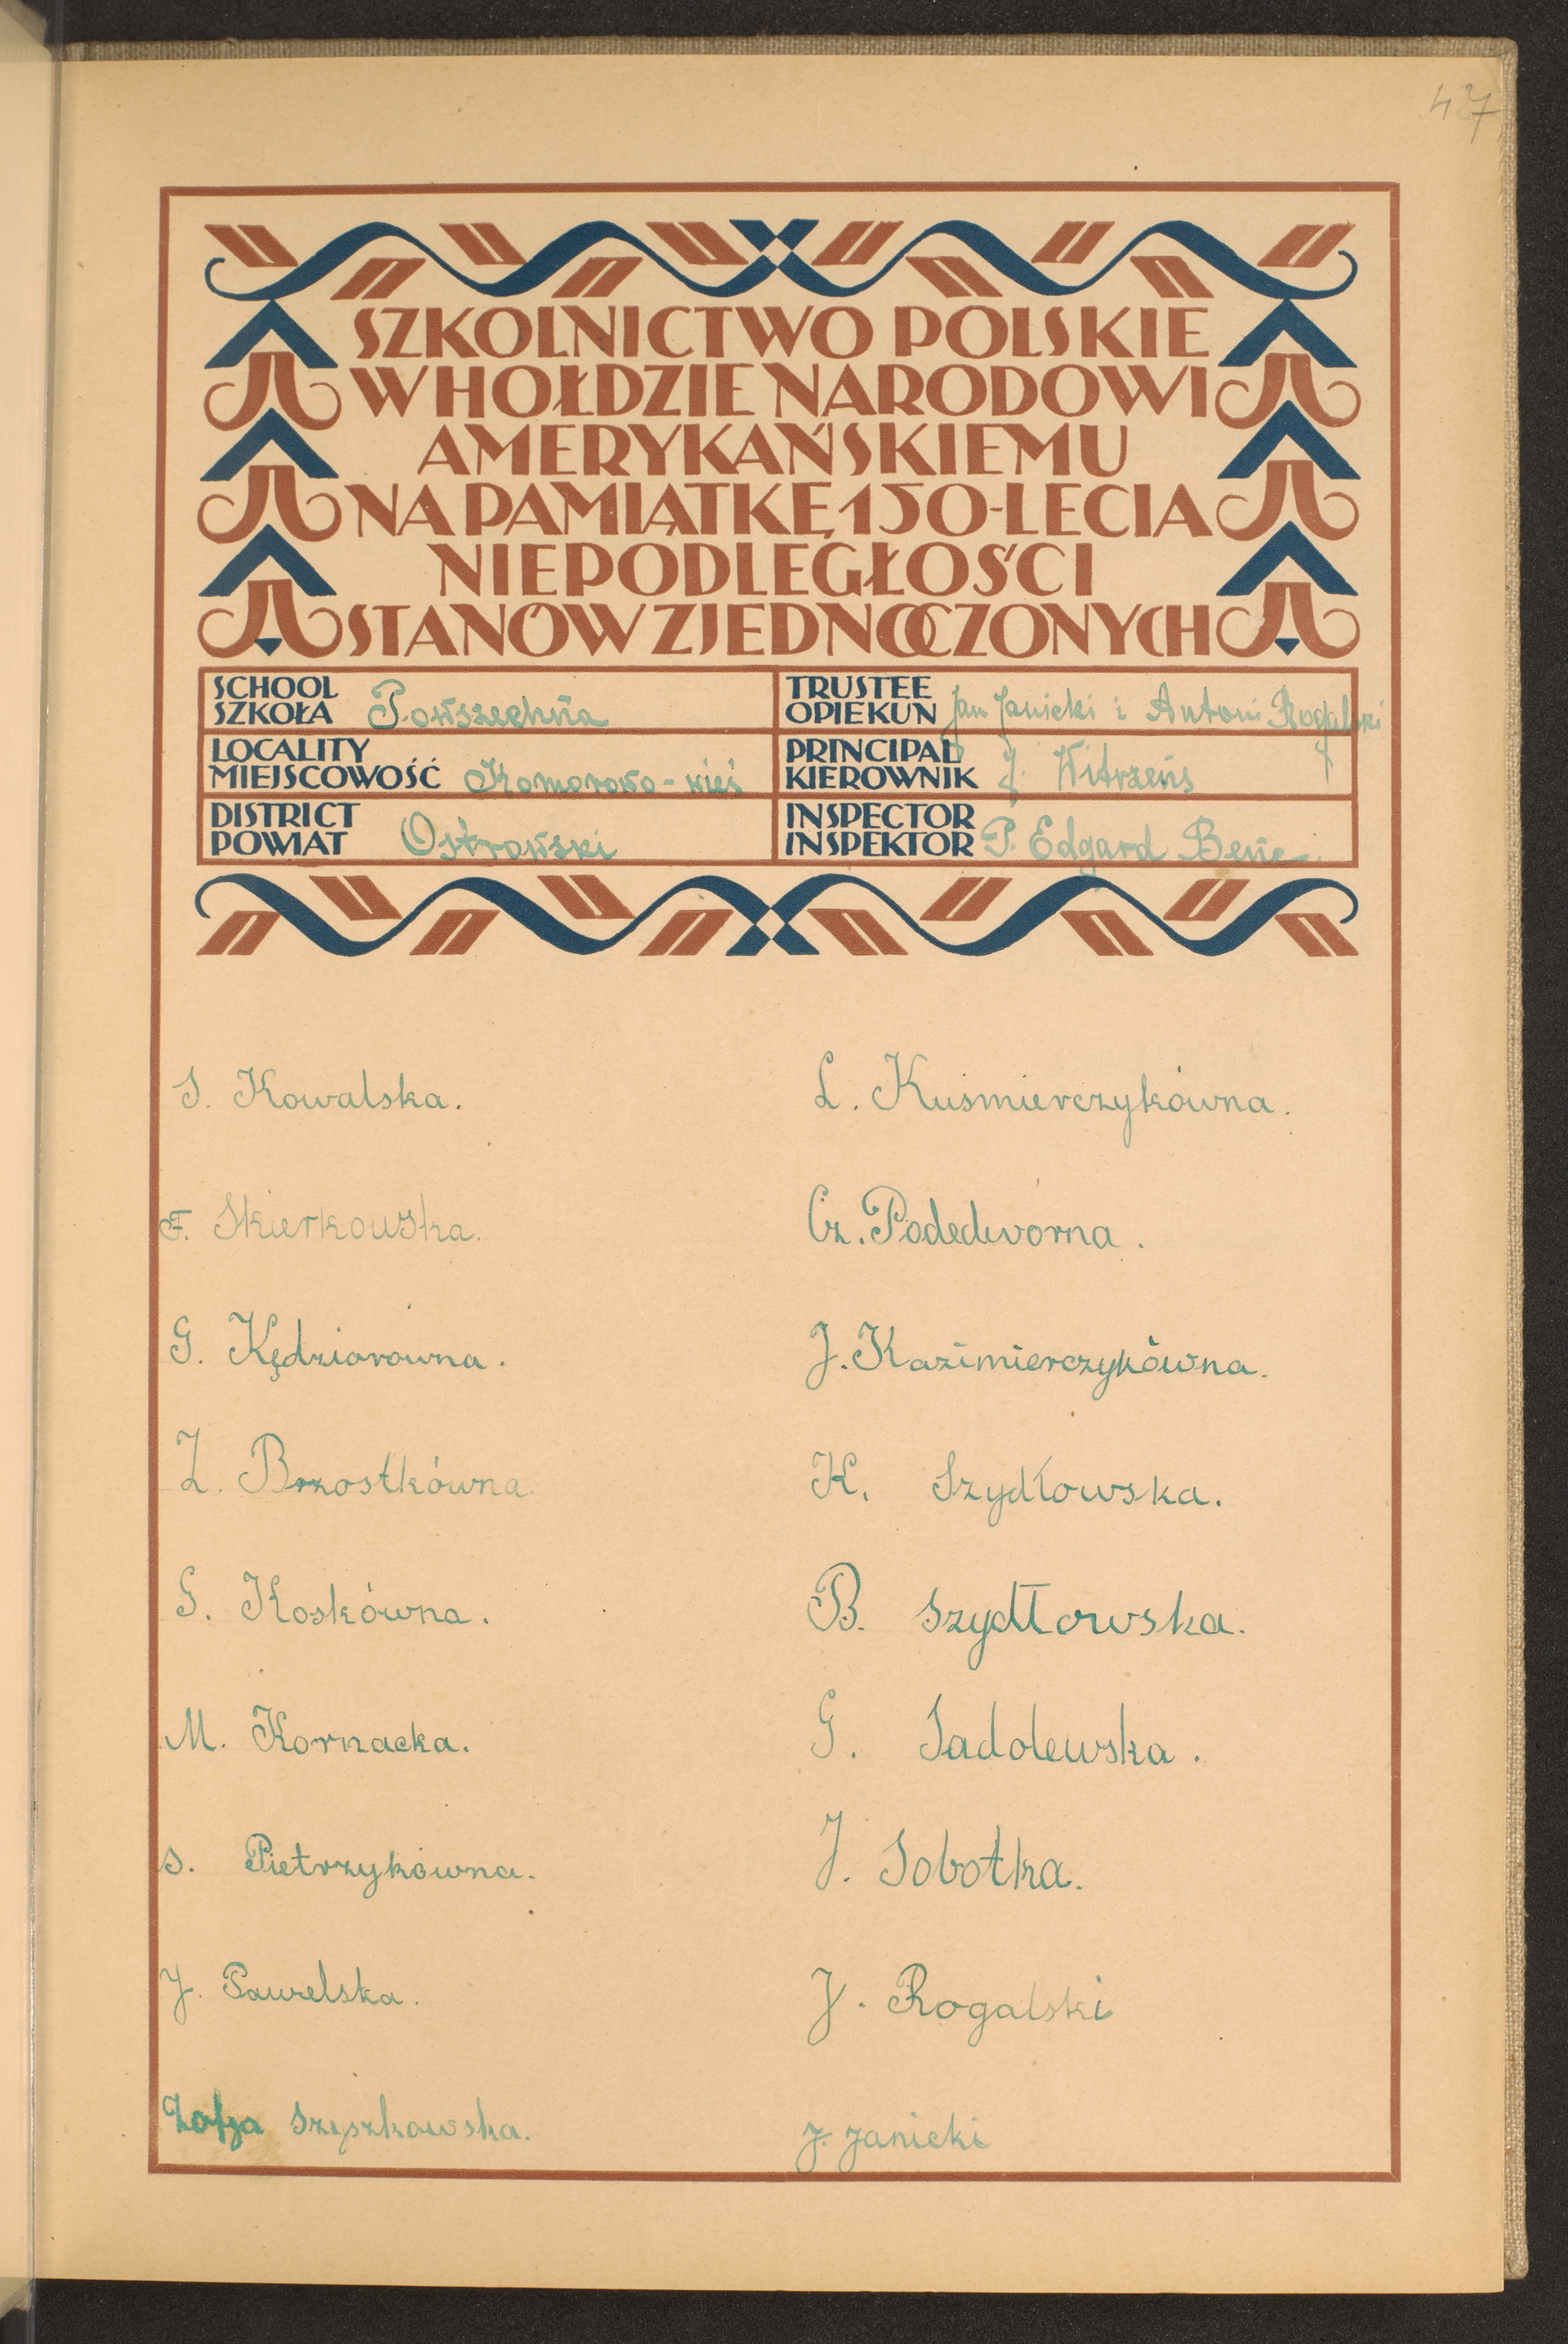 47
SZKOLNICTWO POLSKIE
W HOŁDZIE NARODOWI
AMERYKAŃSKIEMU
NA PAMIĄTKĘ 150-LECIA
NIEPODLEGŁOŚCI
STANÓW ZJEDNOCZONYCH
SCHOOL
SZKOŁA Powszechna
TRUSTEE
OPIEKUN Jan Janicki i Antoni Rogalski
LOCALITY
MIEJSCOWOŚĆ Komorowo-wieś
PRINCIPAL
KIEROWNIK J.
DISTRICT
POWIAT Ostrowski
INSPECTOR
INSPEKTOR P. Edgard
S. Kowalska.
L. Kuśmierczykówna.
F. Skierkowska.
Cz. Podedworna.
G. Kędziorowna.
J. Kazimierczykówna.
Z. Brzostkówna.
K. Szydłowska.
G. Koskówna.
B. Szydłowska.
M. Kornacka.
G. Sadolewska.
S. Pietrzykówna.
J. Sobotka.
J. Pawelska.
J. Rogalski
Zofja Szyszkowska.
J. Janicki